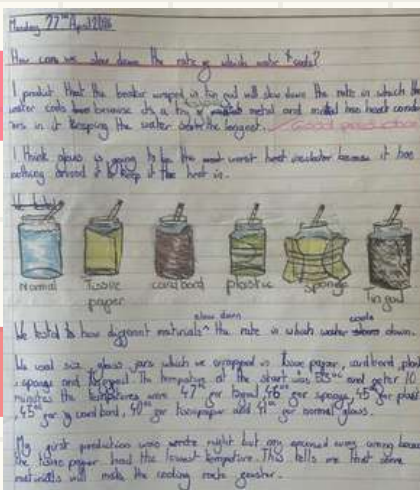 Monday 27th April 20
How can we slow down the rate of which water cools?
I predict that the beaker wraped in tin foil will slow down the rate in which the
water cools because its a type of metal and metal has heat
ors in it keeping the water the longest. Good prediction
I think glass is going to be the worst heat insulator because it has
nothing around it to keep it the heat in.
We tested
Normal
Tissue paper
cardbord
plastic
Sponge
Tin foil
We tested to how different materials ^ slow down the rate in which water cools down.
We used six glass jars which we wrapped in tissue paper, cardboard, plast
, sponge and tin foil. The tempature at the start was 55°C and after 10
minutes the tempatures were 47°C for tinfoil, 46°C for sponge, 45°C for plast
, 45°C for cardbord, 40°C for tissue paper and 41°C for normal glass.
My first prediction was right but my second was wrong becau
the tissue paper had the lowest tempature. This tells me that some
materials will make the cooling rate faster.